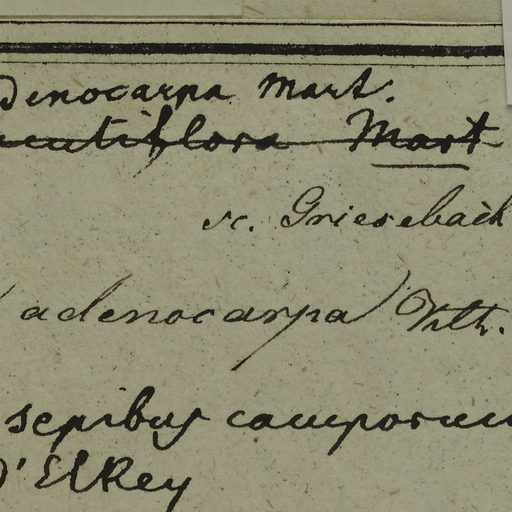 adenocarpa Mart.
acutiflora Mart
sc. Griesebach
adenocarpa)
sepibus camporum
d'ElRey